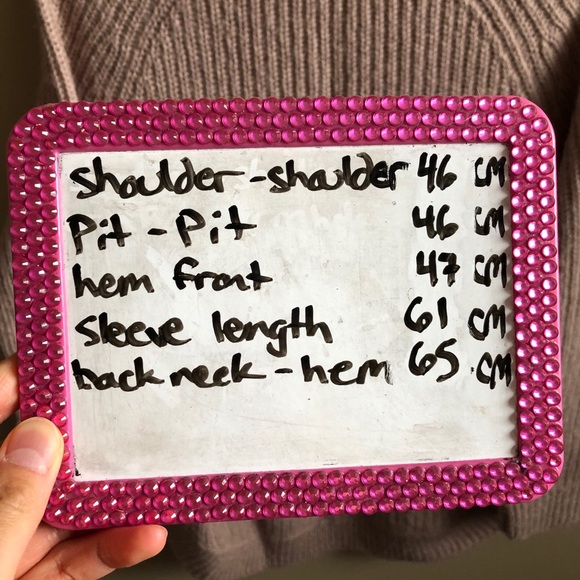 shoulder-shoulder 46 cm
Pit - Pit 46 cm
hem front 47 cm
sleeve length 61 cm
back neck - hem 65 cm